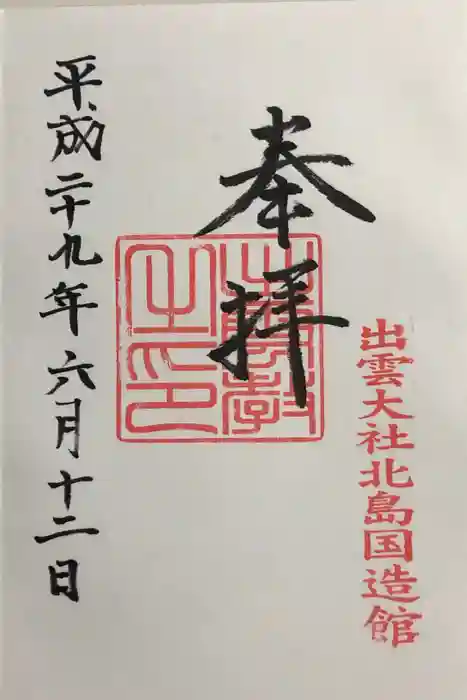 出雲大社北島国造館
奉拝
出雲教
之印
平成二十九年六月十二日